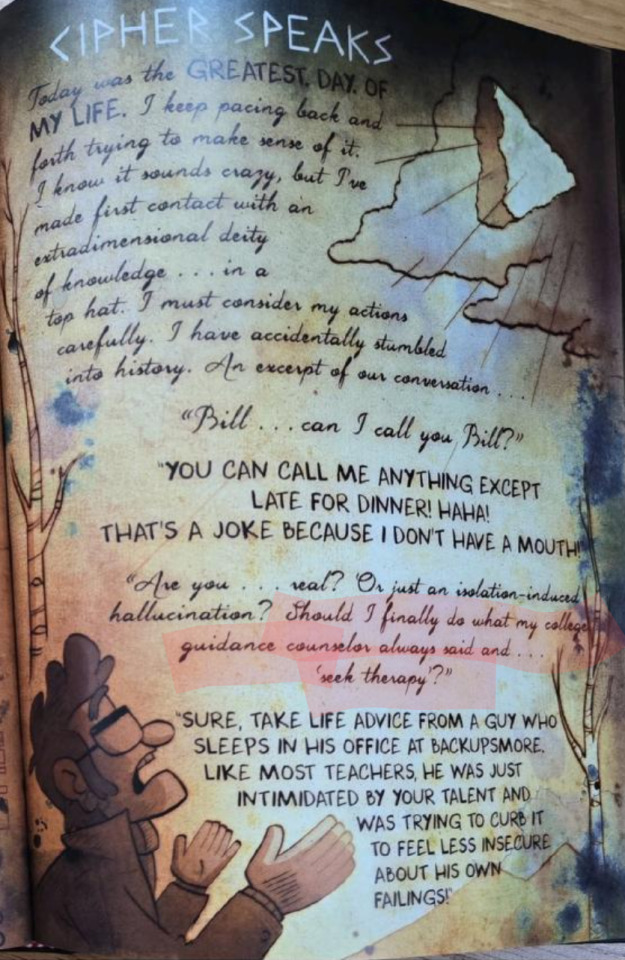 CIPHER SPEAKS
Today was the GREATEST. DAY. OF
MY LIFE. I keep pacing back and
forth trying to make sense of it.
I know it sounds crazy, but I've
made first contact with an
extradimensional deity
of knowledge . . . in a
top hat. I must consider my actions
carefully. I have accidentally stumbled
into history. An excerpt of our conversation . . .
"Bill . . . can I call you Bill?"
"YOU CAN CALL ME ANYTHING EXCEPT
LATE FOR DINNER! HAHA!
THAT'S A JOKE BECAUSE I DON'T HAVE A MOUTH!"
"Are you . . . real? Or just an isolation-induced
hallucination? Should I finally do what my college
guidance counselor always said and . . .
'seek therapy'?"
"SURE, TAKE LIFE ADVICE FROM A GUY WHO
SLEEPS IN HIS OFFICE AT BACKUPSMORE.
LIKE MOST TEACHERS, HE WAS JUST
INTIMIDATED BY YOUR TALENT AND
WAS TRYING TO CURB IT
TO FEEL LESS INSECURE
ABOUT HIS OWN
FAILINGS!"